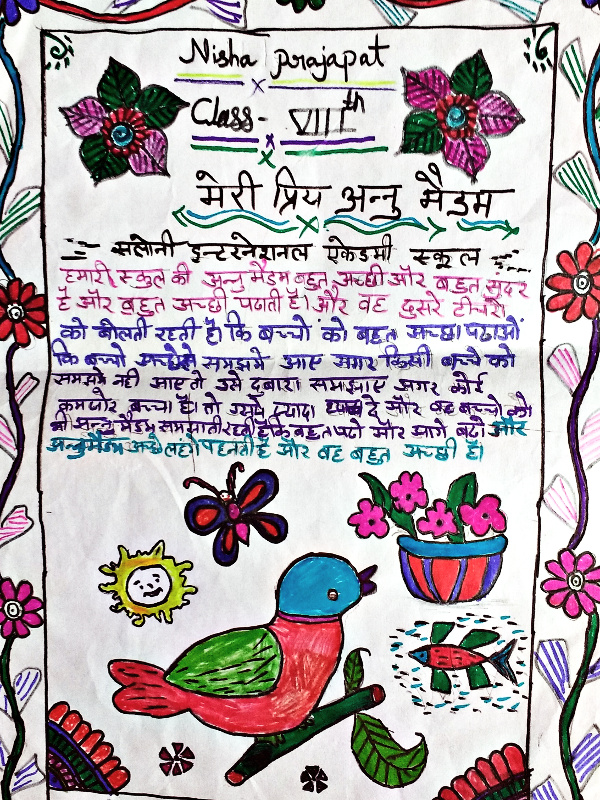 Nisha prajapat
Class- VIIIth
मेरी प्रिय अन्नु मैडम
सलोनी इन्टरनेशनल ऐकेडमी स्कूल
हमारी स्कुल की अन्नु मैडम बहुत अच्छी और बहुत सुंदर
है और बुहुत अच्छी पढाती है। और वह दुसरे टीचरो
को बोलती रहती है। कि बच्चो को बहुत अच्छा पढाओं
कि बच्चो समझमे आए अगर किसी बच्चे को
समझमे नही आए तो उसे दुबारा समझाए अगर कोई
कमजोर बच्चा है। तो उसपे ज्यादा ध्यान दे और वह बच्चो को
भी अन्नु मैडम समझाती रहती है कि बहुत पढो और आगे बढो और
अन्नुमैडम अच्छे पहनती है और वह बहुत अच्छी है।